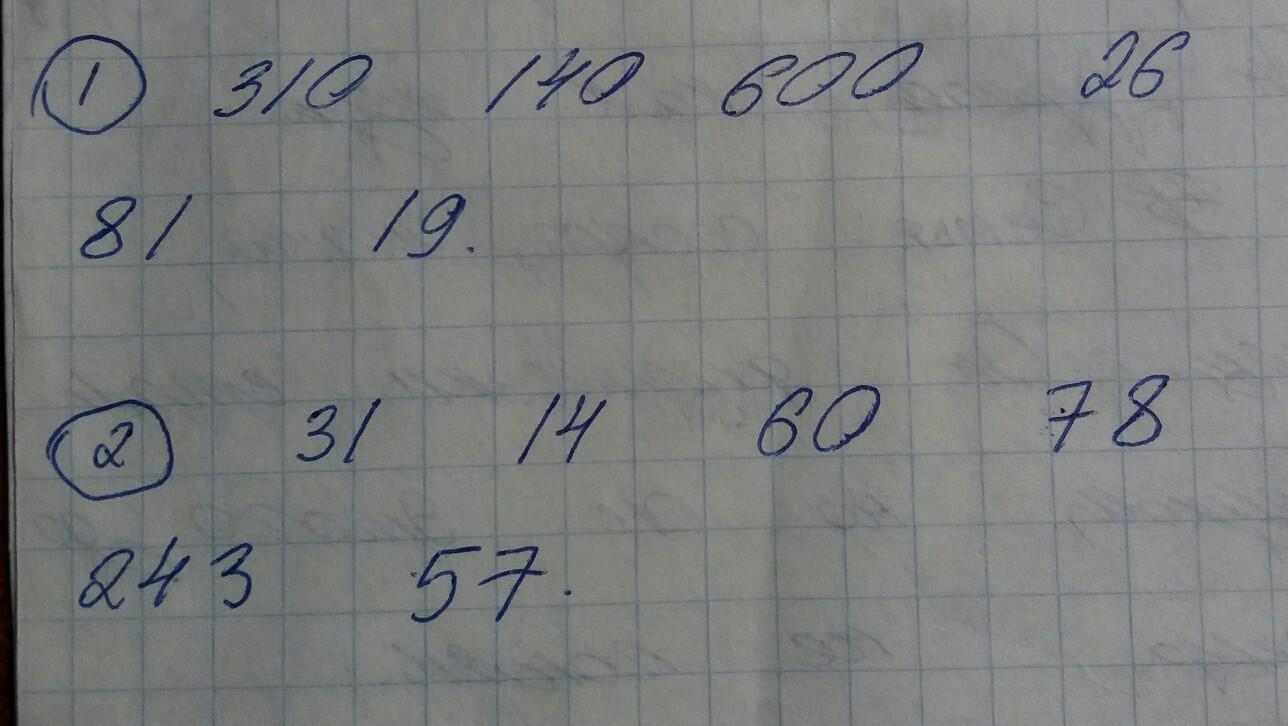 1 310 140 600 26
81 19.
2 31 14 60 78
243 57.